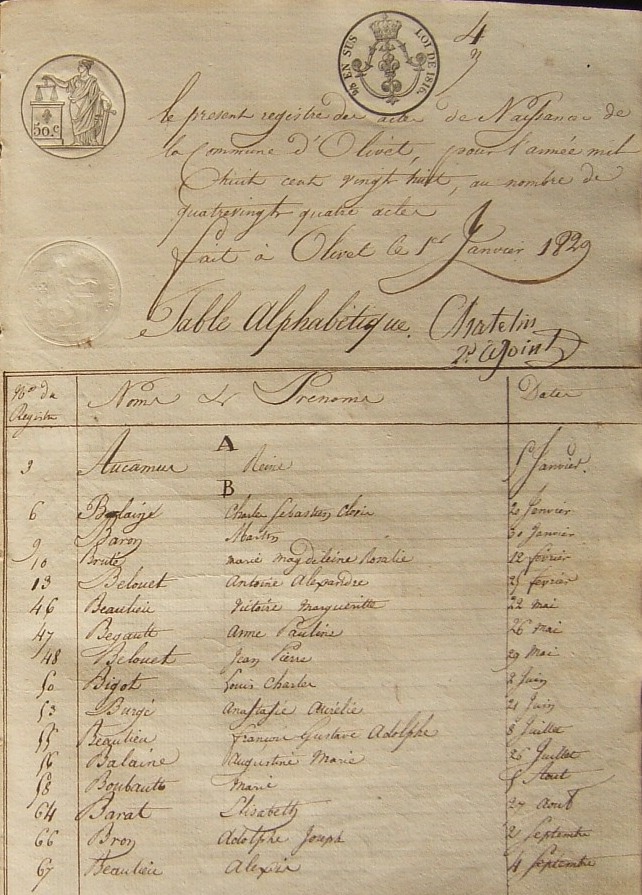 50 c
98 EN SUS LOI DE 1816
4
le present registre des actes de Naissance de
la Commune d'Olivet, pour l'année mil
huit cent vingt huit, au nombre de
quatrevingt quatre actes
fait à Olivet le 1er Janvier 1829
Table Alphabétique. Chatelin
adjoint
Nos du Registre Noms & Prenoms Dates
A
3 Aucamus Reine 5 Janvier.
B
6 Balaine Charles Sébastien 20 Janvier
9 Baron Martin 30 Janvier
10 Bruté marie Magdeleine Rosalie 12 février
13 Belouet Antoine Alexandre 25 fevrier
46 Beaulieu Victoire Margueritte 22 mai
47 Begault Anne Pauline 26 mai
48 Belouet Jean Pierre 29 Mai
50 Bigot Louis Charles 2 Juin
53 Burgé Anastasie Aurélie 21 Juin
55 Beaulieu francois Gustave Adolphe 8 Juillet
56 Balaine Augustine Marie 26 Juillet
58 Boubault Marie 5 Aout
64 Barat Elisabeth 27 Aout
66 Bron Adolphe Joseph 2 Septembre
67 Beaulieu Alexis 4 Septembre